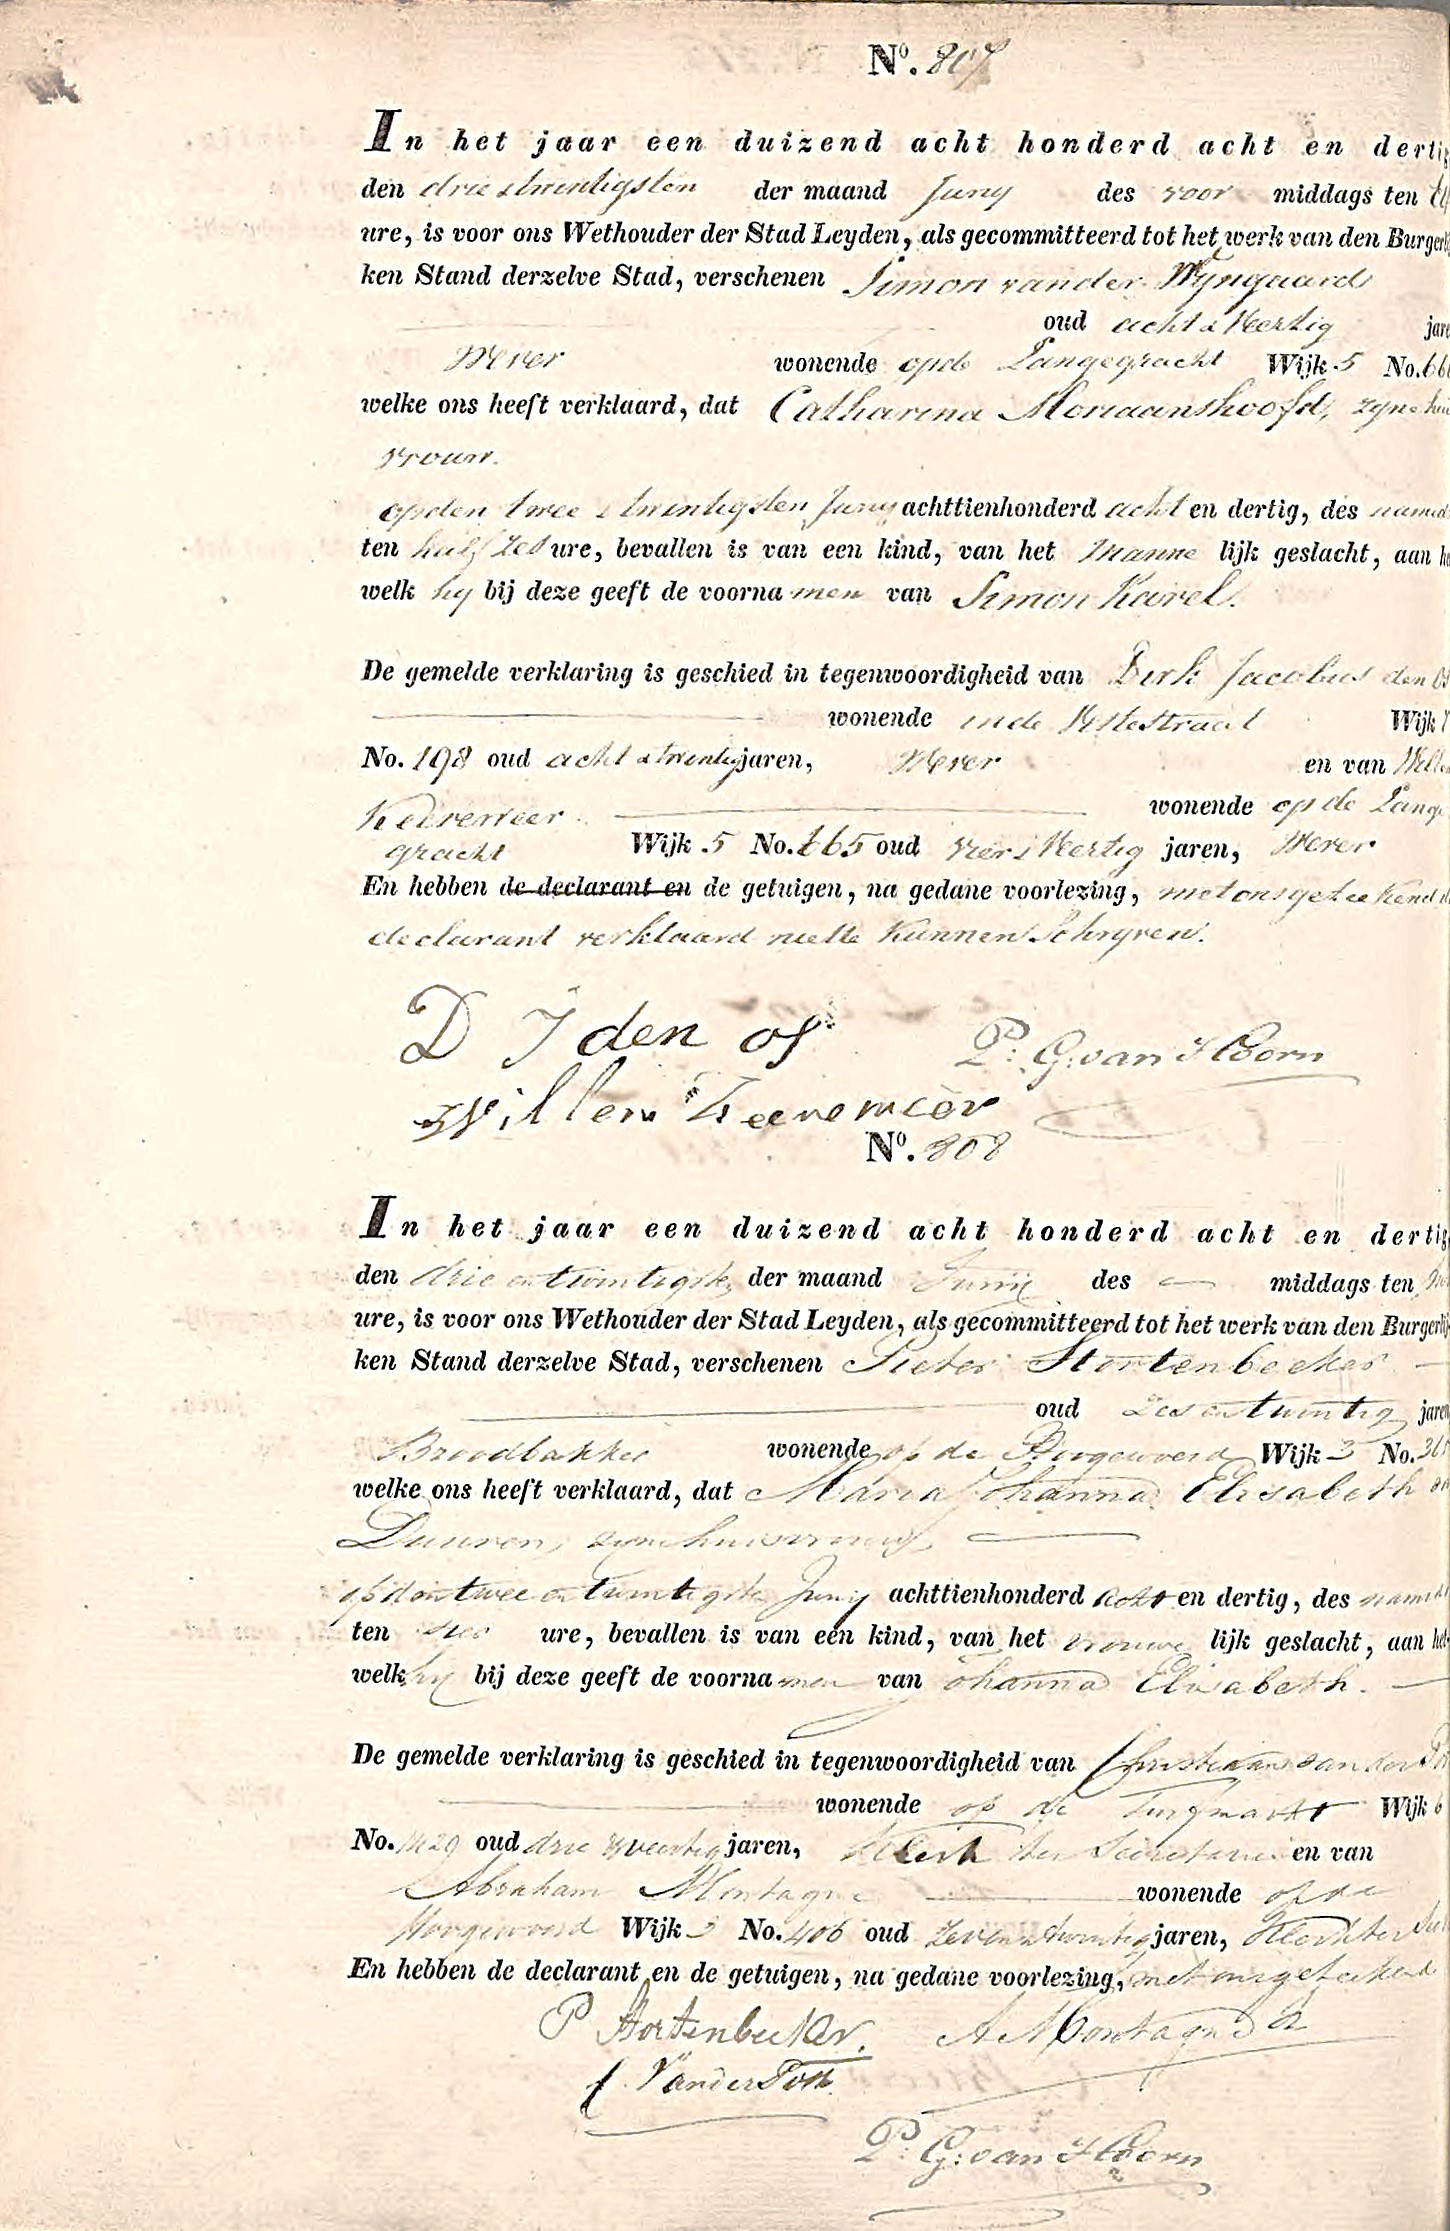 No. 807
In het jaar een duizend acht honderd acht en dertig
den drie & twintigsten der maand Juny des voor middags ten
ure, is voor ons Wethouder der Stad Leyden, als gecommitteerd tot het werk van den Burgerlij
ken Stand derzelve Stad, verschenen Simon vander Wijngaard
oud acht & Veertig jare
Wever wonende op de Langegracht Wijk 5 No. 66
welke ons heeft verklaard, dat Catharina Moriaanshoofd, zyne huis
vrouw.
op den twee & twintigsten Juny achttienhonderd acht en dertig, des namid
ten half zes ure, bevallen is van een kind, van het manne lijk geslacht, aan he
welk hy bij deze geeft de voorna men van Simon Karel.
De gemelde verklaring is geschied in tegenwoordigheid van Dirk Jacobus den Os
wonende in de Vestestraat Wijk
No. 198 oud acht & twintig jaren, Wever en van Willem
Keereweer wonende op de Lange
gracht Wijk 5 No. 665 oud vier & Veertig jaren, Wever
En hebben de declarant en de getuigen, na gedane voorlezing, met ons geteekend
declarant verklaard niet te Kunnen Schryven.
D J den os
P: G: van Hoorn
Willem Keereweer
No. 808
In het jaar een duizend acht honderd acht en dertig
den drie en twintigste der maand Junij des middags ten
ure, is voor ons Wethouder der Stad Leyden, als gecommitteerd tot het werk van den Burgerlij
ken Stand derzelve Stad, verschenen Pieter Stortenbeeker
oud zes en twintig jaren
Broodbakker wonende op de Hoogewoerd Wijk 3 No. 36
welke ons heeft verklaard, dat Maria Johanna Elisabeth
Duuren, zyne huisvrouw,
op den twee en twintigste Junij achttienhonderd acht en dertig, des namid
ten ure, bevallen is van een kind, van het vrouwe lijk geslacht, aan het
welk hij bij deze geeft de voorna men van Johanna Elisabeth.
De gemelde verklaring is geschied in tegenwoordigheid van Christiaan van der Pot
wonende op de Turfmarkt Wijk 6
No. 1429 oud drie & veertig jaren, Klerk ter Secretarie en van
Abraham Montagne wonende op de
Hoogewoerd Wijk 3 No. 406 oud zeven en twintig jaren, Klerk ter
En hebben de declarant en de getuigen, na gedane voorlezing, met ons geteekend
P Stortenbeeker. A Montagne
C Van der Pott
P: G: van Hoorn